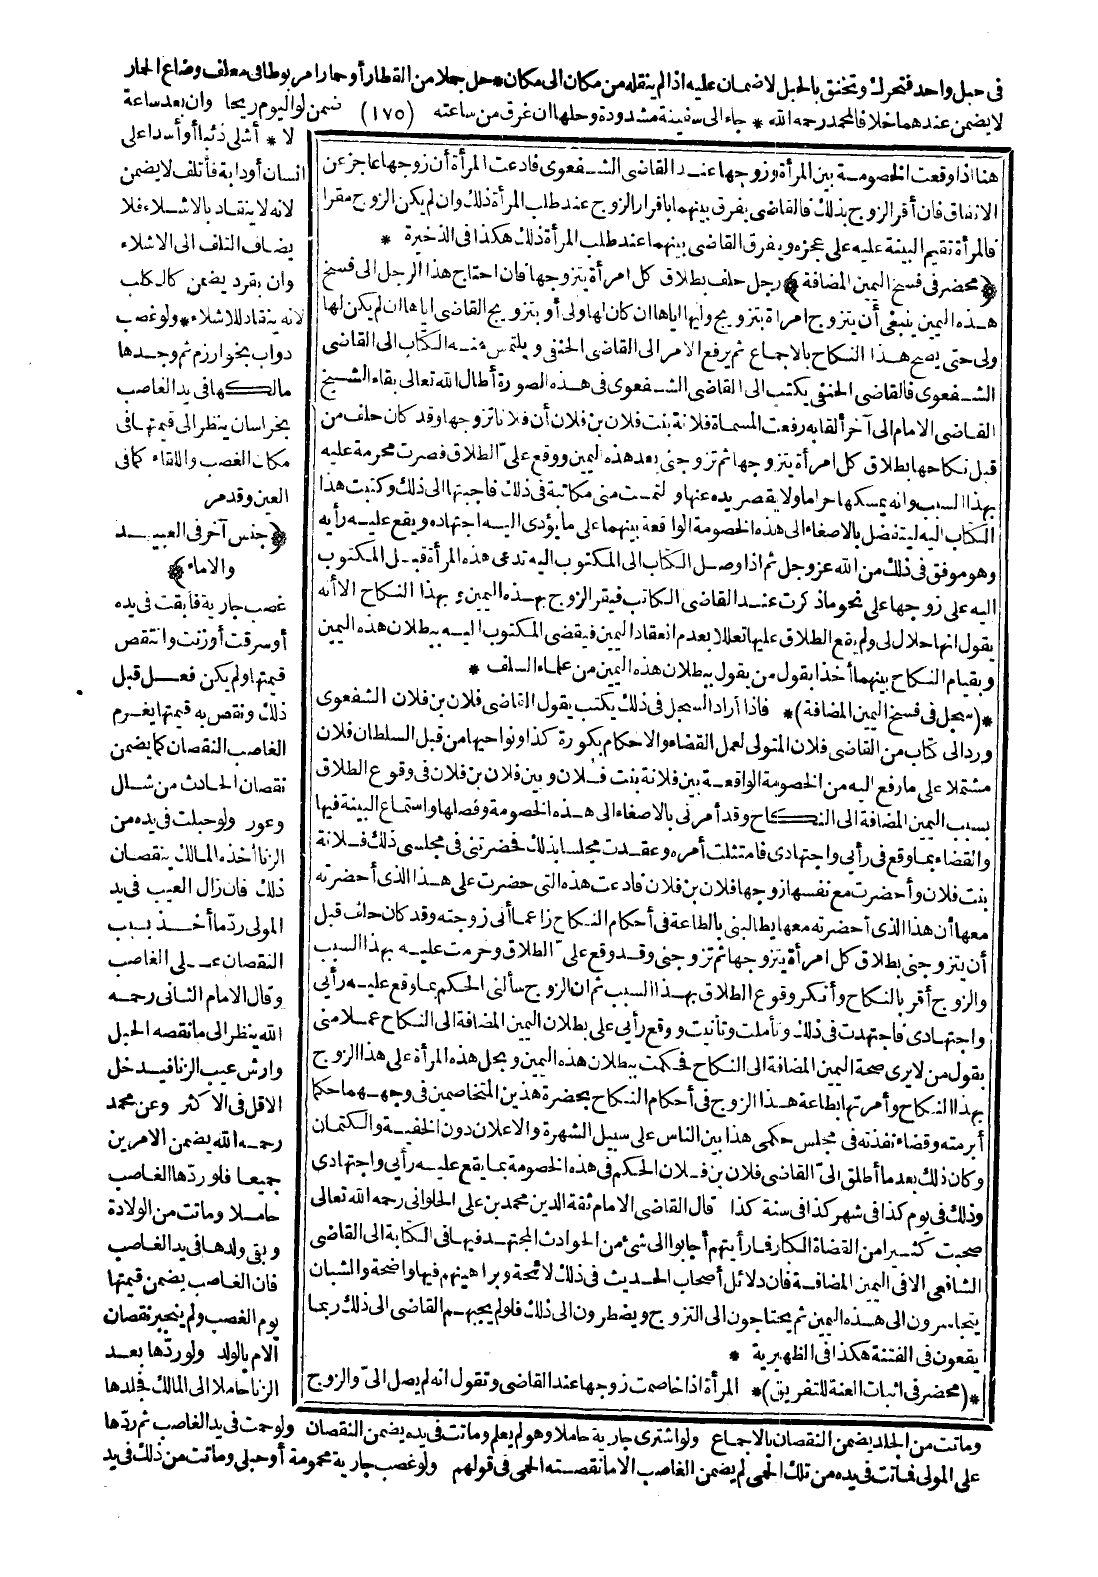 فى حبل واحد فتحرك وتخنق بالحبل لا ضمان عليه اذا لم ينقله من مكان الى مكان * حل جملا من القطار أو حمارا مربوطا فى معلف وضاع الحمار
لا يضمن عندهما خلافا لمحمد رحمه الله * جاء الى سفينة مشدودة وحلها ان غرق من ساعته (١٧٥) ضمن لو اليوم ريحا وان بعد ساعة
هنا اذا وقعت الخصومة بين المرأة وزوجها عند القاضى الشفعوى فادعت المرأة أن زوجها عاجز عن
الانفاق فان أقر الزوج بذلك فالقاضى يفرق بينهما باقرار الزوج عند طلب المرأة ذلك وان لم يكن الزوج مقرا
فالمرأة تقيم البينة عليه على عجزه ويفرق القاضى بينهما عند طلب المرأة ذلك هكذا فى الذخيرة *
﴿محضر فى فسخ اليمين المضافة﴾ رجل حلف بطلاق كل امرأة يتزوجها فان احتاج هذا الرجل الى فسخ
هذه اليمين ينبغى أن يتزوج امراة بتزويج وليها اياها ان كان لها ولى أو بتزويج القاضى اياها ان لم يكن لها
ولى حتى يصح هذا النكاح بالاجماع ثم يرفع الامر الى القاضى الحنفى ويلتمس منه الكتاب الى القاضى
الشفعوى فالقاضى الحنفى يكتب الى القاضى الشفعوى فى هذه الصورة أطال الله تعالى بقاء الشيخ
القاضى الامام الى آخر ألقابه رفعت المسماة فلانة بنت فلان بن فلان أن فلانا تزوجها وقد كان حلف من
قبل نكاحها بطلاق كل امرأة يتزوجها ثم تزوجنى بعد هذه اليمين ووقع على الطلاق فصرت محرمة عليه
بهذا السبب وانه يمسكها حراما ولا يقصر يده عنها والتمست منى مكاتبة فى ذلك فأجبتها الى ذلك وكتبت هذا
الكتاب اليه ليتفضل بالاصغاء الى هذه الخصومة الواقعة بينهما على ما يؤدى اليه اجتهاده ويقع عليه رأيه
وهو موفق فى ذلك من الله عز وجل ثم اذا وصل الكتاب الى المكتوب اليه تدعى هذه المرأة قبل المكتوب
اليه على زوجها على نحو ماذكرت عند القاضى الكاتب فيقر الزوج بهذه اليمين وبهذا النكاح الا أنه
يقول انها حلال لى ولم يقع الطلاق عليها تعللا بعدم انعقاد اليمين فيقضى المكتوب اليه ببطلان هذه اليمين
وبقيام النكاح بينهما أخذا بقول من يقول ببطلان هذه اليمين من علماء السلف *
*(سجل فى فسخ اليمين المضافة)* فاذا أراد السجل فى ذلك يكتب يقول القاضى فلان بن فلان الشفعوى
ورد الى كتاب من القاضى فلان المتولى لعمل القضاء والاحكام بكورة كذا ونواحيها من قبل السلطان فلان
مشتملا على ما رفع اليه من الخصومة الواقعة بين فلانة بنت فلان وبين فلان بن فلان فى وقوع الطلاق
بسبب اليمين المضافة الى النكاح وقد أمرنى بالاصغاء الى هذه الخصومة وفصلها واستماع البينة فيها
والقضاء بما وقع فى رأيى واجتهادى فامتثلت أمره وعقدت مجلسا بذلك فحضرتنى فى مجلسى ذلك فلانة
بنت فلان وأحضرت مع نفسها زوجها فلان بن فلان فادعت هذه التى حضرت على هذا الذى أحضرته
معها أن هذا الذى أحضرته معها يطالبنى بالطاعة فى أحكام النكاح زاعما أنى زوجته وقد كان حلف قبل
أن يتزوجنى بطلاق كل امرأة يتزوجها ثم تزوجنى وقد وقع على الطلاق وحرمت عليه بهذا السبب
والزوج أقر بالنكاح وأنكر وقوع الطلاق بهذا السبب ثم ان الزوج سألنى الحكم بما وقع عليه رأيى
واجتهادى فاجتهدت فى ذلك وتأملت وتأنيت ووقع رأيى على بطلان اليمين المضافة الى النكاح عملا منى
بقول من لا يرى صحة اليمين المضافة الى النكاح فحكمت ببطلان هذه اليمين وبحل هذه المرأة على هذا الزوج
بهذا النكاح وأمرتها بطاعة هذا الزوج فى أحكام النكاح بحضرة هذين المتخاصمين فى وجههما حكما
أبرمته وقضاء نفذته فى مجلس حكمى هذا بين الناس على سبيل الشهرة والاعلان دون الخفية والكتمان
وكان ذلك بعد ما أطلق الىّ القاضى فلان بن فلان الحكم فى هذه الخصومة بما يقع عليه رأيى واجتهادى
وذلك فى يوم كذا فى شهر كذا فى سنة كذا قال القاضى الامام ثقة الدين محمد بن على الحلوانى رحمه الله تعالى
صحبت كثيرا من القضاة الكبار فما رأيتهم أجابوا الى شئ من الحوادث المجتهد فيها فى الكتابة الى القاضى
الشافعى الا فى اليمين المضافة فان دلائل أصحاب الحديث فى ذلك لائحة وبراهينهم فيها واضحة والشبان
يتجاسرون الى هذه اليمين ثم يحتاجون الى التزوج ويضطرون الى ذلك فلو لم يجبهم القاضى الى ذلك ربما
يقعون فى الفتنة هكذا فى الظهيرية *
*(محضر فى اثبات العنة للتفريق)* المرأة اذا خاصمت زوجها عند القاضى وتقول انه لم يصل الىّ والزوج
لا * أشلى ذئبا أو أسدا على
انسان أو دابة فأتلف لا يضمن
لانه لا ينقاد بالاشلاء فلا
يضاف التلف الى الاشلاء
وان يقرد يضمن كالكلب
لانه ينقاد للاشلاء * ولو غصب
دواب بخوارزم ثم وجدها
مالكها فى يد الغاصب
بخراسان ينظر الى قيمتها فى
مكان الغصب واللقاء كما فى
العين وقد مر
﴿جنس آخر فى العبيد
والاماء﴾
غصب جارية فأبقت فى يده
أو سرقت أو زنت وانتقص
قيمتها ولم يكن فعل قبل
ذلك ونقص به قيمتها يغرم
الغاصب النقصان كما يضمن
نقصان الحادث من شلل
وعور ولو حبلت فى يده من
الزنا أخذه المالك بنقصان
ذلك فان زال العيب فى يد
المولى ردّ ما أخذ بسبب
النقصان على الغاصب
وقال الامام الثانى رحمه
الله ينظر الى ما نقصه الحبل
وارش عيب الزنا فيدخل
الاقل فى الاكثر وعن محمد
رحمه الله يضمن الامرين
جميعا فلو ردّها الغاصب
حاملا وماتت من الولادة
وبقى ولدها فى يد الغاصب
فان الغاصب يضمن قيمتها
يوم الغصب ولم ينجبر نقصان
الام بالولد ولو ردّها بعد
الزنا حاملا الى المالك فجلدها
وماتت من الجلد يضمن النقصان بالاجماع ولو اشترى جارية حاملا وهو لم يعلم وماتت فى يده يضمن النقصان ولو حمت فى يد الغاصب ثم ردّها
على المولى فماتت فى يده من تلك الحمى لم يضمن الغاصب الا ما نقصته الحمى فى قولهم ولو غصب جارية محمومة أو حبلى وماتت من ذلك فى يد